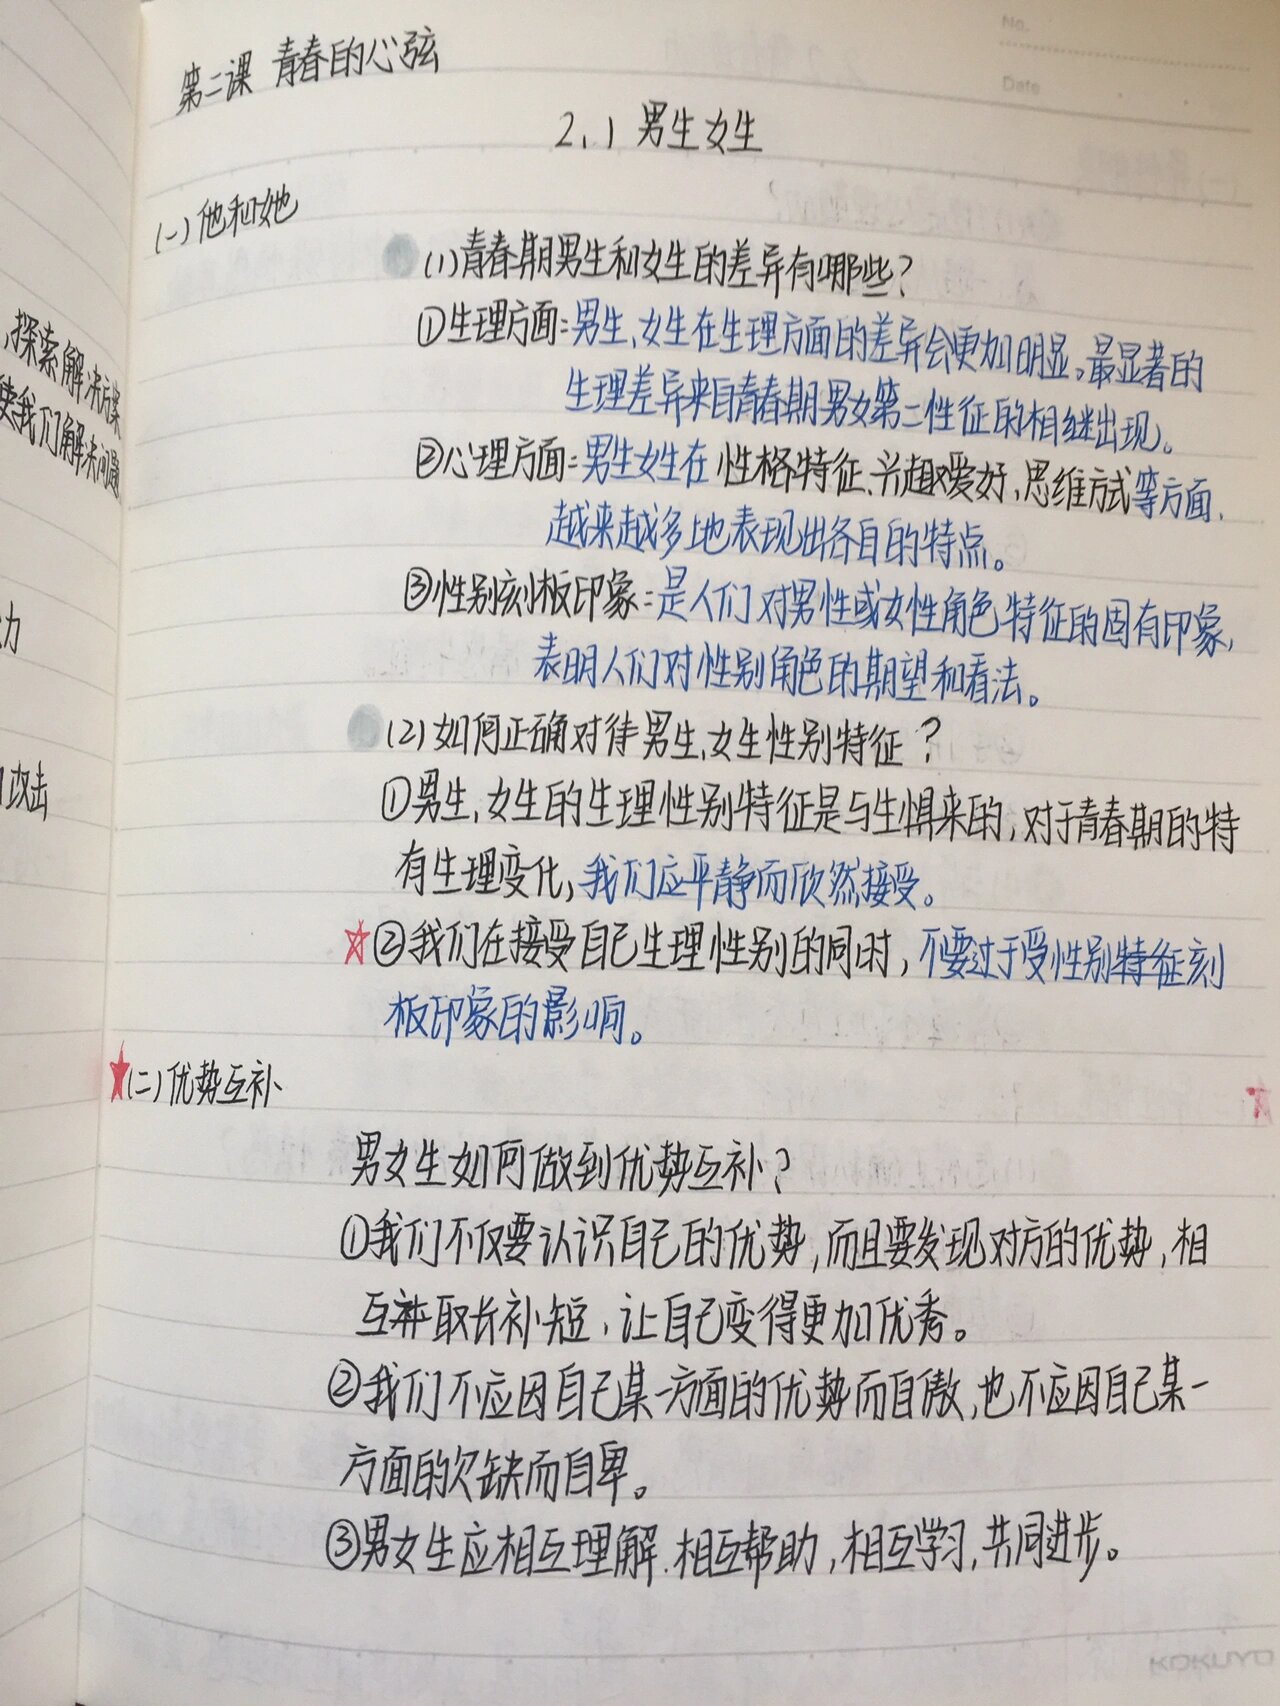 No.
Date
第二课 青春的心弦
2.1 男生女生
(一)他和她
(1)青春期男生和女生的差异有哪些?
①生理方面:男生、女生在生理方面的差异会更加明显。最显著的
生理差异来自青春期男女第二性征的相继出现。
②心理方面:男生女生在 性格特征、兴趣爱好、思维方式等方面,
越来越多地表现出各自的特点。
③性别刻板印象:是人们对男性或女性角色特征的固有印象,
表明人们对性别角色的期望和看法。
(2)如何正确对待男生、女生性别特征?
①男生、女生的生理性别特征是与生惧来的,对于青春期的特
有生理变化,我们应平静而欣然接受。
②我们在接受自己生理性别的同时,不要过于受性别特征刻
板印象的影响。
(二)优势互补
男女生如何做到优势互补?
①我们不仅要认识自己的优势,而且要发现对方的优势,相
互补 取长补短,让自己变得更加优秀。
②我们不应因自己某一方面的优势而自傲,也不应因自己某一
方面的欠缺而自卑。
③男女生应相互理解、相互帮助,相互学习,共同进步。
,探索解决方案
使我们解决问题
力
攻击
KOKUYO